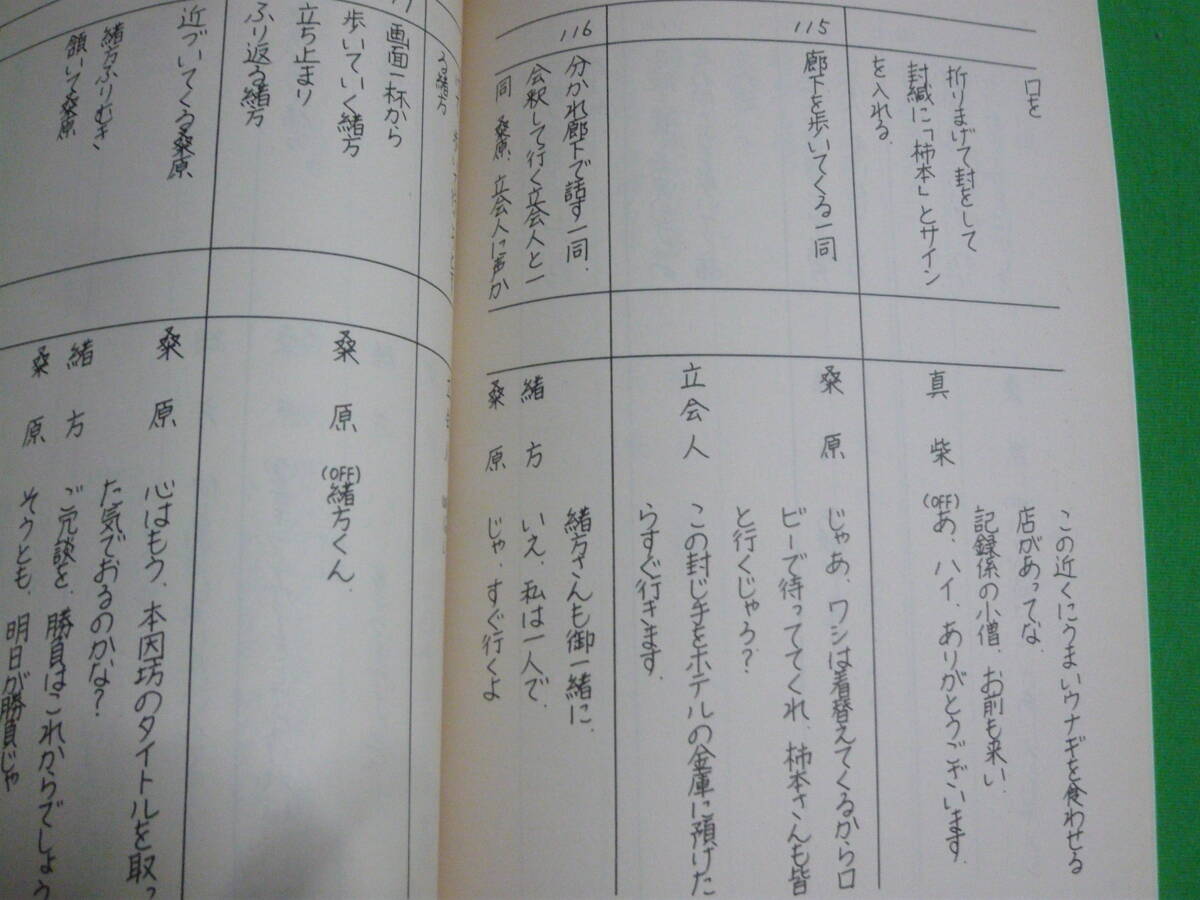 口を
折りまげて封をして
封緘に「柿本」とサイン
を入れる
この近くにうまいウナギを食わせる
店があってな
記録係の小僧、お前も来い
真柴 (OFF) あ、ハイ、ありがとうございます
115
廊下を歩いてくる一同
桑原 じゃあ、ワシは着替えてくるからロ
ビーで待っててくれ、柿本さんも皆
と行くじゃろ?
立会人 この封じ手をホテルの金庫に預けた
らすぐ行きます
116
分かれ廊下で話す一同、
会釈して行く立会人と一
同 桑原、立会人に声か
緒方さんも御一緒に、
緒方 いえ、私は一人で、
桑原 じゃ、すぐ行くよ
る緒方
画面一杯から
歩いていく緒方
立ち止まり
ふり返る緒方
桑原 (OFF) 緒方くん
近づいてくる桑原
緒方ふりむき
頷いて桑原
桑原 心はもう、本因坊のタイトルを取っ
た気でおるのかな?
緒方 ご冗談を、勝負はこれからでしょう
桑原 そうとも、明日が勝負じゃ